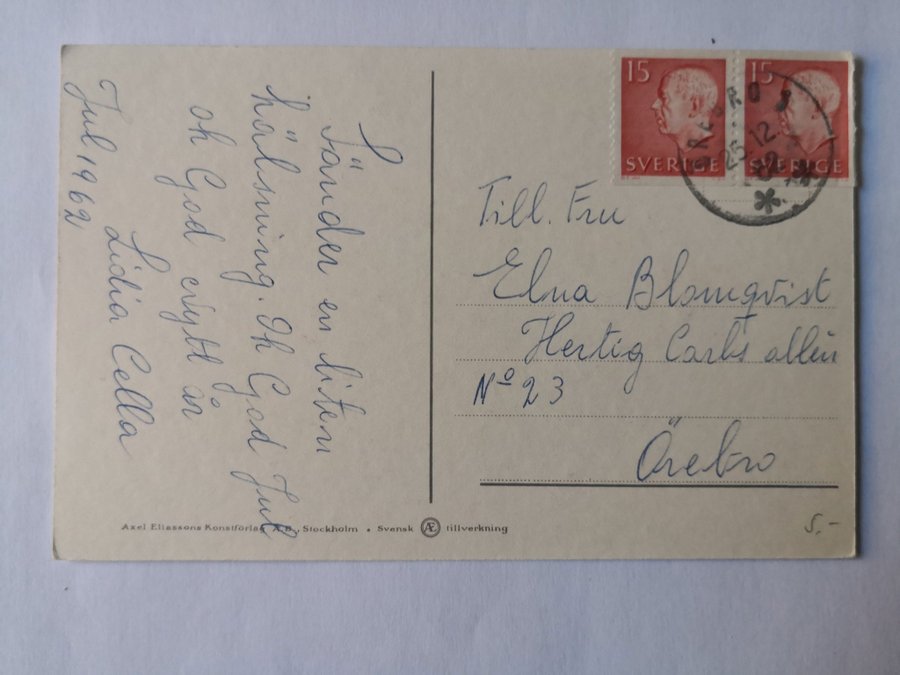 Sänder en liten
hälsning. Oh God Jul
oh God nytt år
Lidia Cella
Jul 1962
15 SVERIGE
15 SVERIGE
25 12
Till. Fru
Elna Blomqvist
Hertig Carls allén
Nº 23
Örebro
Axel Eliassons Konstförlag A.B., Stockholm • Svensk Æ tillverkning
5.-